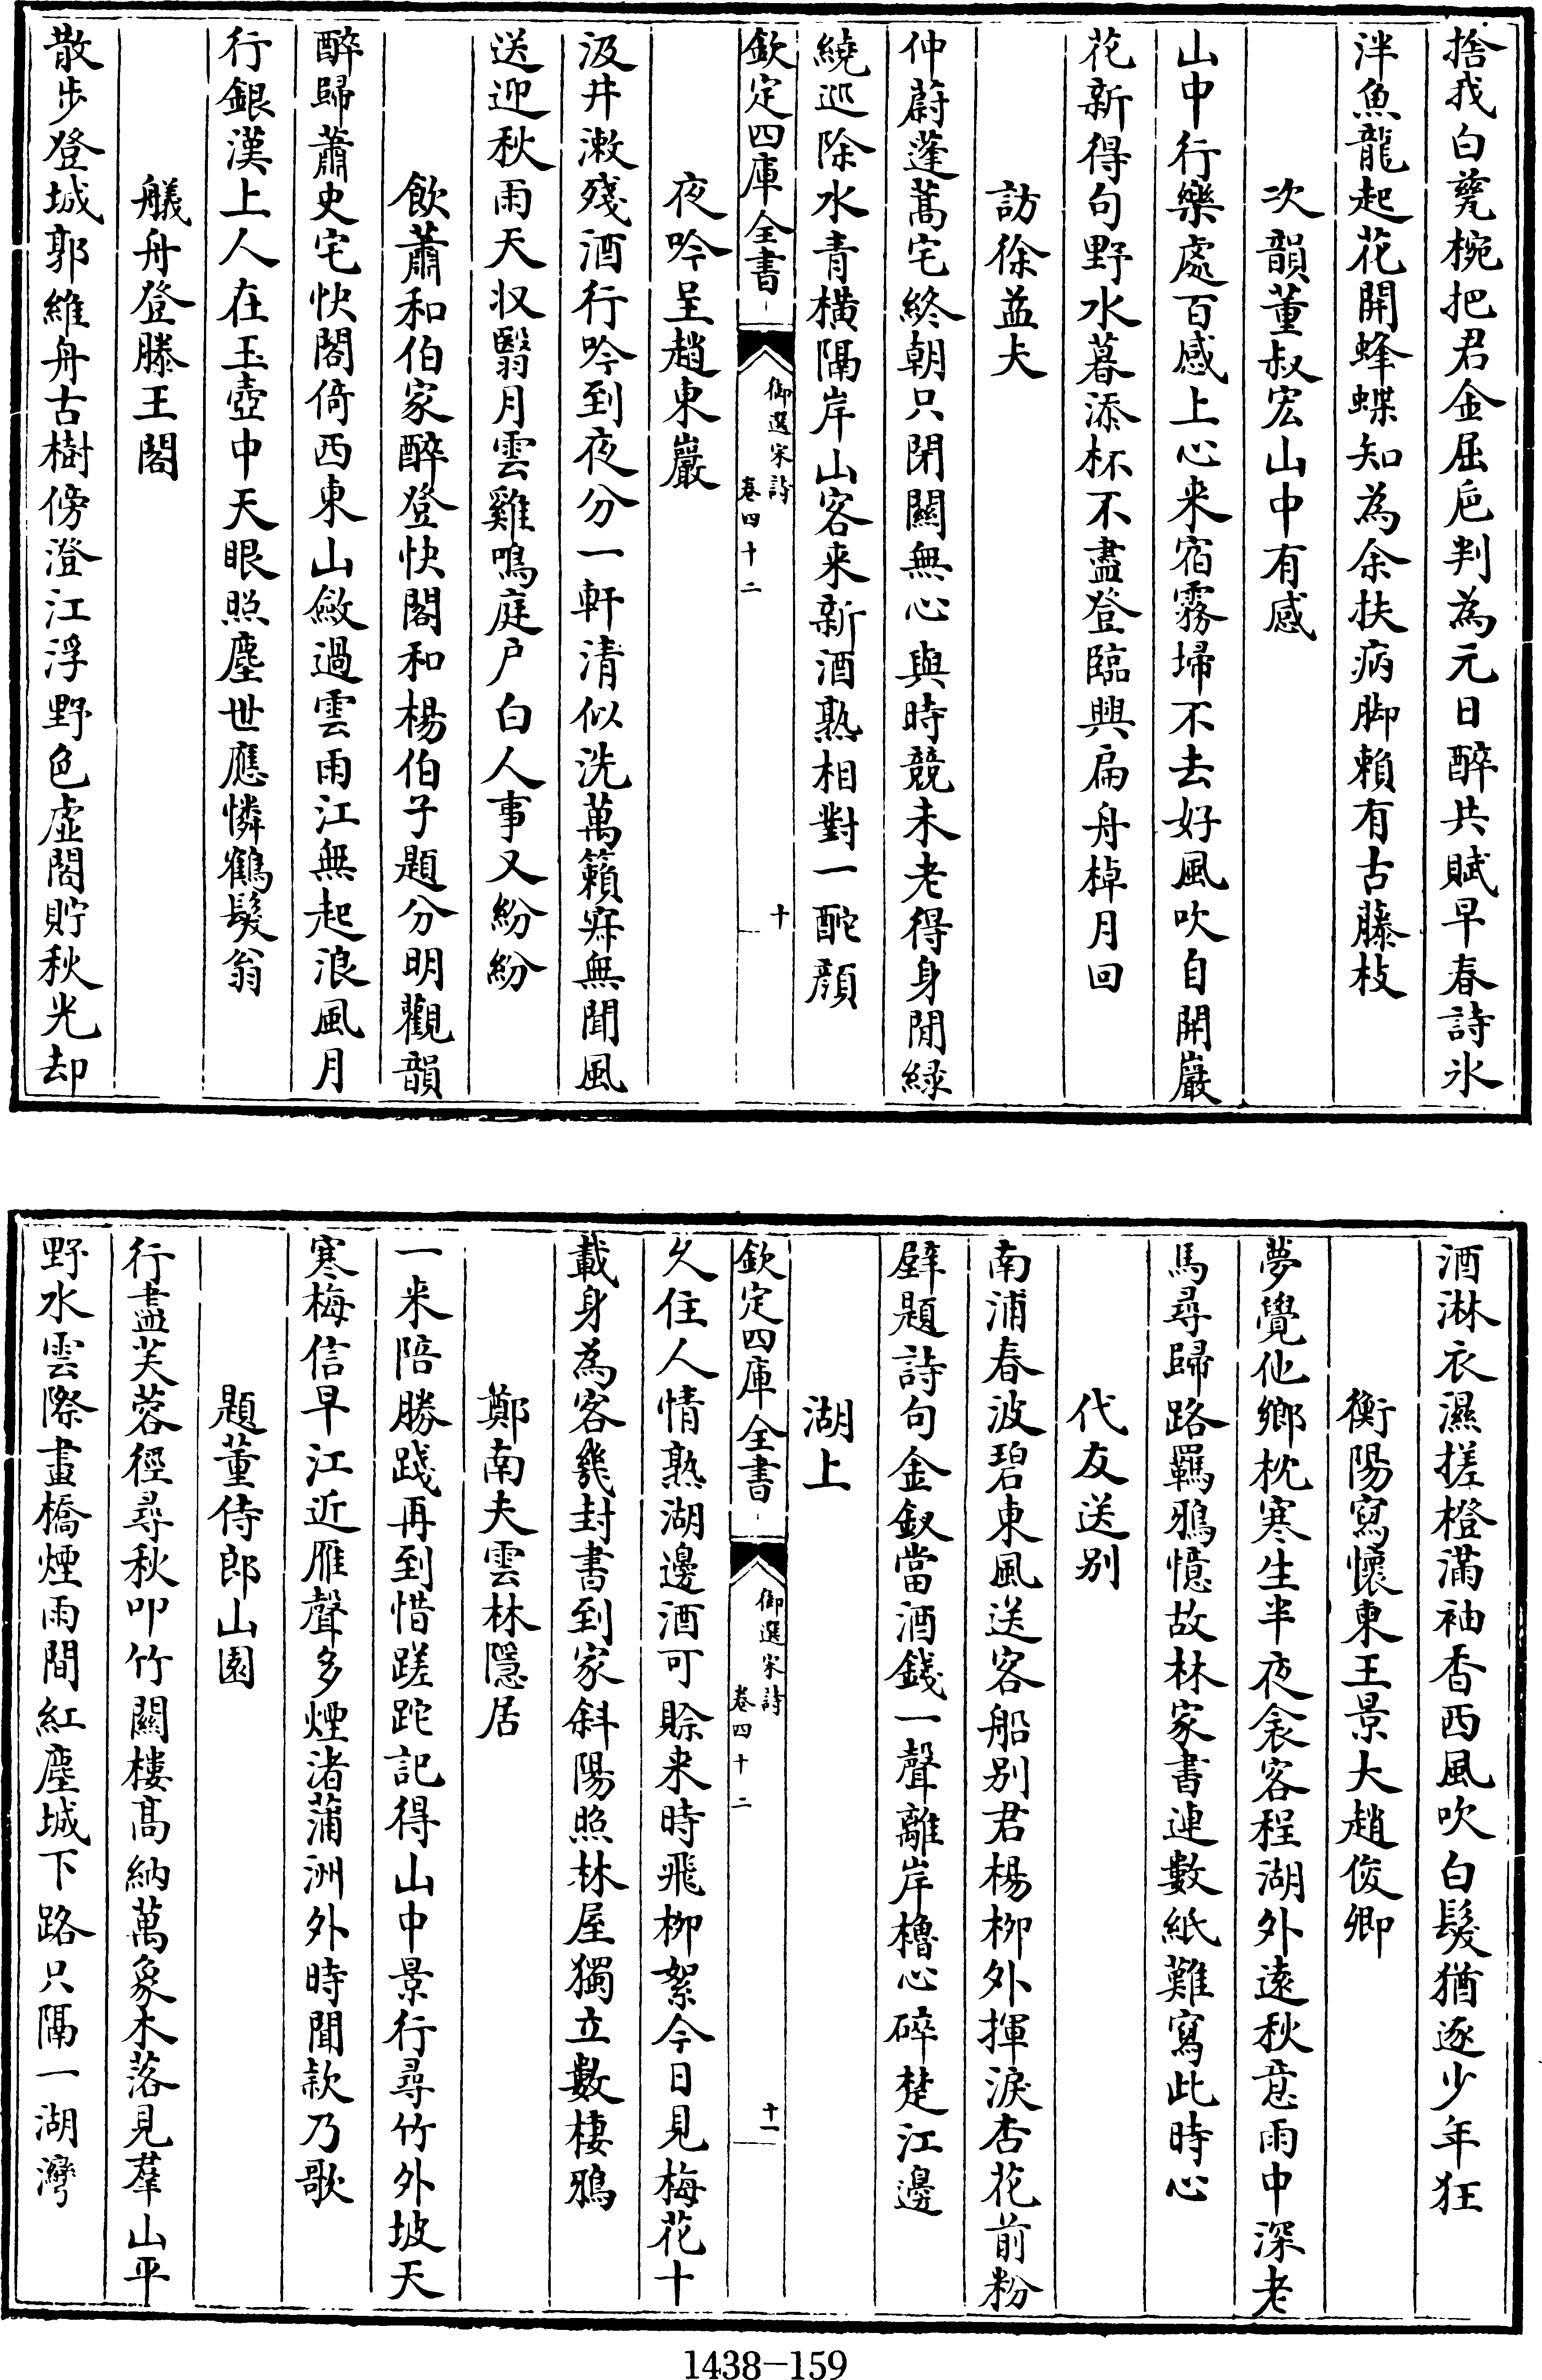 捨我白甆椀把君金屈巵判為元日醉共賦早春詩氷
泮魚龍起花開蜂蝶知為余扶病脚賴有古藤枝
次韻董叔宏山中有感
山中行樂處百感上心来宿霧埽不去好風吹自開巖
花新得句野水暮添杯不盡登臨興扁舟棹月回
訪徐益夫
仲蔚蓬蒿宅終朝只閉關無心與時競未老得身閒緑
繞巡除水青横隔岸山客来新酒熟相對一酡顔
欽定四庫全書
御選宋詩
卷四十二
十
夜吟呈趙東巖
汲井潄殘酒行吟到夜分一軒清似洗萬籟寂無聞風
送迎秋雨天収翳月雲雞鳴庭户白人事又紛紛
飲蕭和伯家醉登快閣和楊伯子題分明觀韻
醉歸蕭史宅快閣倚西東山斂過雲雨江無起浪風月
行銀漢上人在玉壺中天眼照塵世應憐鶴髮翁
艤舟登滕王閣
散步登城郭維舟古樹傍澄江浮野色虚閣貯秋光却
酒淋衣濕搓橙滿袖香西風吹白髮猶逐少年狂
衡陽寫懷東王景大趙俊卿
夢覺他鄉枕寒生半夜衾客程湖外遠秋意雨中深老
馬尋歸路羈鴉憶故林家書連數紙難寫此時心
代友送别
南浦春波碧東風送客船别君楊柳外揮淚杏花前粉
壁題詩句金釵當酒錢一聲離岸櫓心碎楚江邊
湖上
欽定四庫全書
御選宋詩
卷四十二
十一
久住人情熟湖邊酒可賒来時飛柳絮今日見梅花十
載身為客幾封書到家斜陽照林屋獨立數棲鴉
鄭南夫雲林隱居
一来陪勝踐再到惜蹉跎記得山中景行尋竹外坡天
寒梅信早江近雁聲多煙渚蒲洲外時聞欵乃歌
題董侍郎山園
行盡芙蓉徑尋秋叩竹關樓髙納萬象木落見羣山平
野水雲際畫橋煙雨間紅塵城下路只隔一湖灣
1438—159